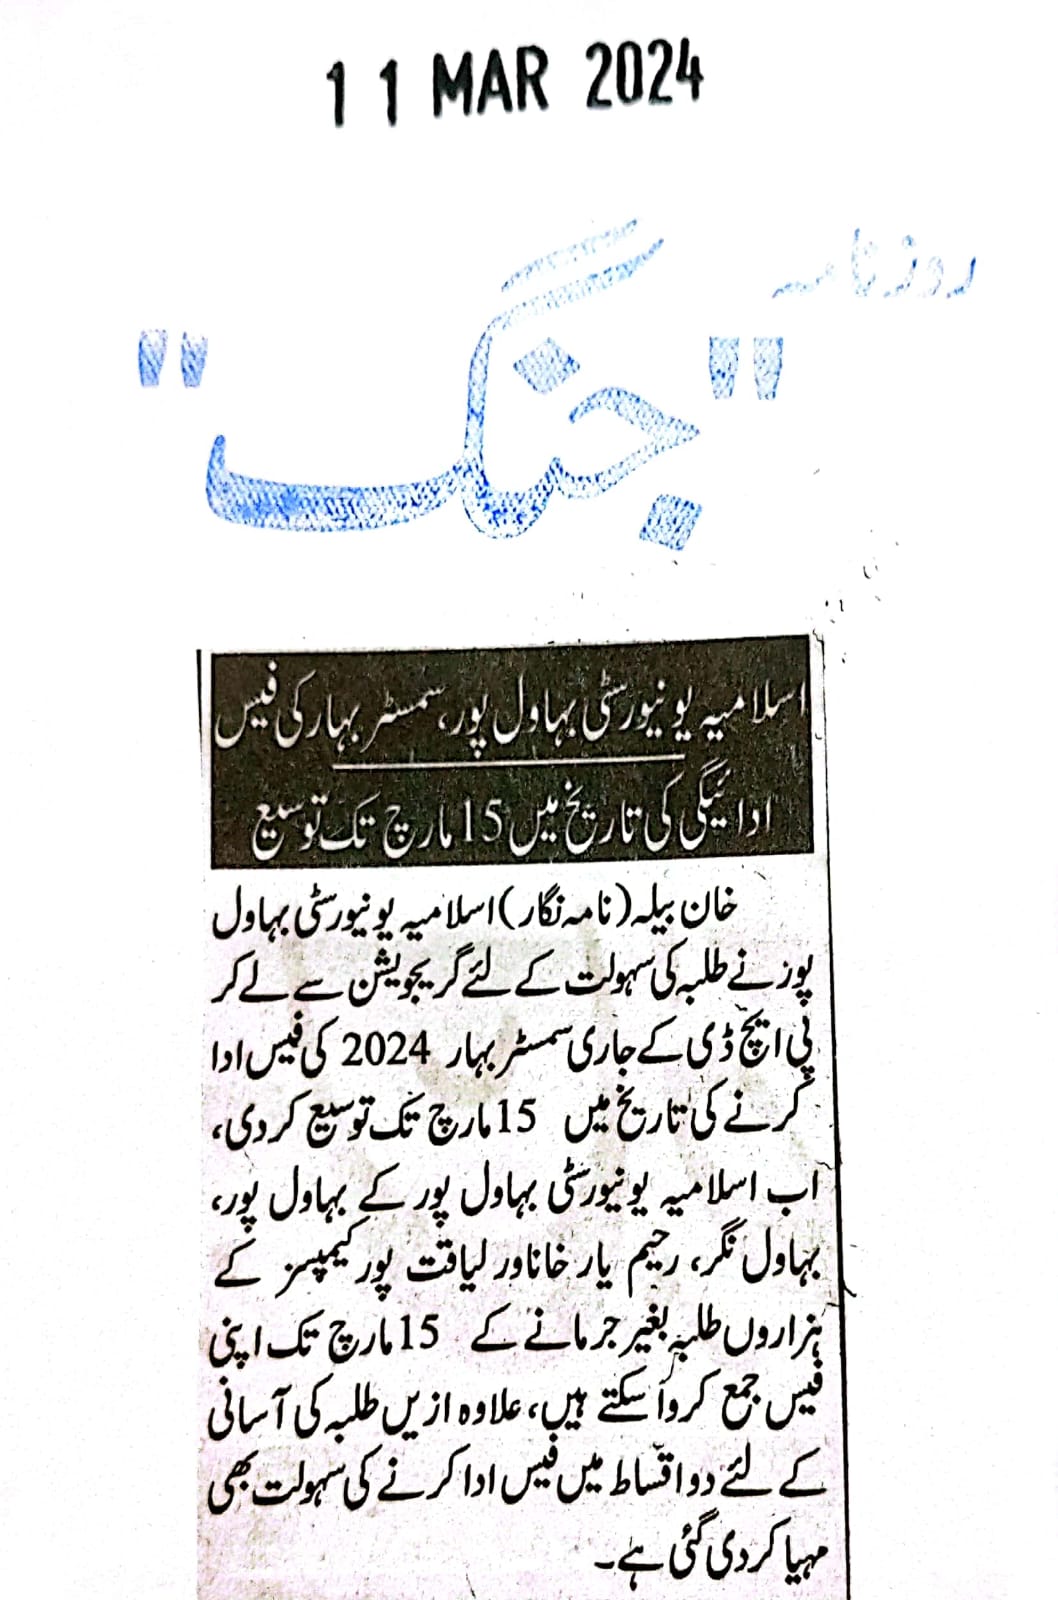 11 MAR 2024
روزنامہ
"جنگ"
اسلامیہ یونیورسٹی بہاول پور، سمسٹر بہار کی فیس
ادائیگی کی تاریخ میں 15 مارچ تک توسیع
خان بیلہ (نامہ نگار) اسلامیہ یونیورسٹی بہاول
پور نے طلبہ کی سہولت کے لئے گریجویشن سے لے کر
پی ایچ ڈی کے جاری سمسٹر بہار 2024 کی فیس ادا
کرنے کی تاریخ میں 15 مارچ تک توسیع کر دی،
اب اسلامیہ یونیورسٹی بہاول پور کے بہاول پور،
بہاول نگر، رحیم یار خاناور لیاقت پور کیمپسز کے
ہزاروں طلبہ بغیر جرمانے کے 15 مارچ تک اپنی
فیس جمع کروا سکتے ہیں، علاوہ ازیں طلبہ کی آسانی
کے لئے دو اقساط میں فیس ادا کرنے کی سہولت بھی
مہیا کر دی گئی ہے۔